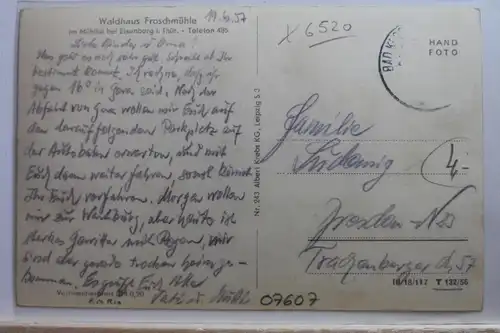 Waldhaus Froschmühle
im Mühltal bei Eisenberg i. Thür. - Telefon 485
11.6.57
Liebe Kinder u. Oma!
Uns geht es noch sehr gut. Schreibt ob Ihr
bestimmt kommt. Ich rechne, daß Ihr
gegen 16° in Gera seid. Nach der
Abfahrt von Gera wollen wir Euch auf
dem darauffolgenden Parkplatz auf
der Autobahn erwarten, und mit
Euch dann weiter fahren, sonst könnt
Ihr Euch verfahren. Morgen wollen
wir zur Wartburg, aber heute ist
starkes Gewitter mit Regen, wir
sind aber gerade trocken heimge-
kommen. Es grüßt Euch
Vati u. Mutti
Nr. 243 Albert Krebs KG, Leipzig S 3
X 6520
HAND
FOTO
BAD
Familie
Dresden-N23
Trachenberger Str. 57
4,-
07607
T 132/56